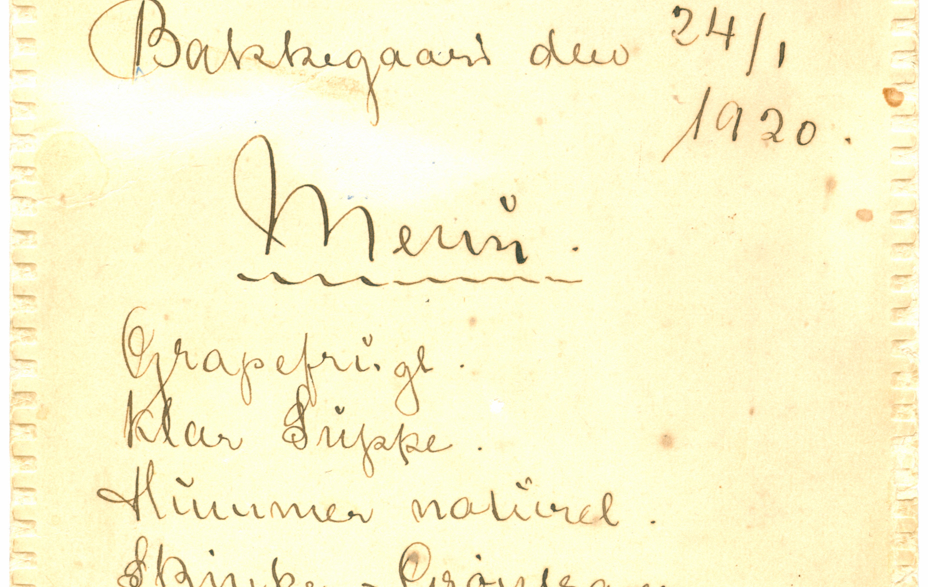 Bakkegaard den 24/1
1920.
Menü.
Grapefrügt.
Klar Süppe.
Hümmer natürel.
Skinke -